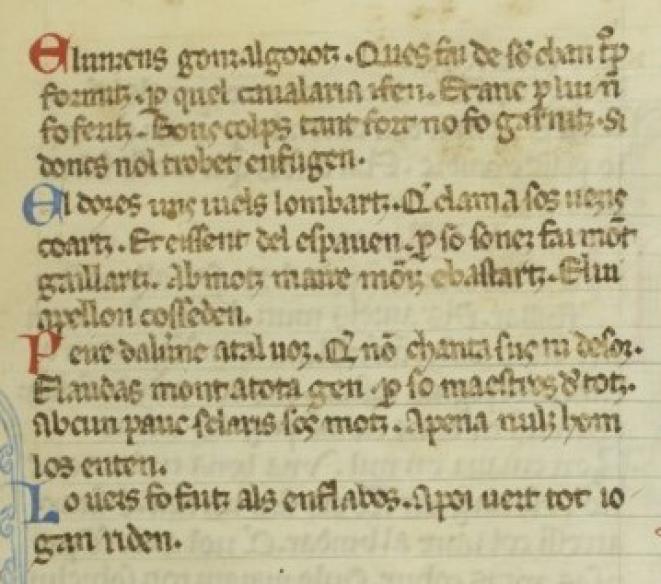 El unzens gonzalgoroitz. Ques fai de só chan trop
formitz. p quel caualaria isen. Et anc p lui n̄
fo feritz. Bons colps tant fort no fo garnitz. Si
doncs nol trobet enfugen.
El dozes uns uiels lombartz. Q̄ clama sos uezis
coartz. Et eissent del espauen. p so sonez fai mōt
gaillartz. Ab motz mare mōtz ebastartz. Elui
apellon cosseden.
Peire daluine a tal uoz. Q̄ nō chanta sus ni desoz.
E laudas mout atota gen. p so maestres d' totz.
Ab cun pauc sclaris sos motz. Apena nulz hom
los enten.
Lo uers fo faitz als enflabotz. A poi uert tot io
gan riden.